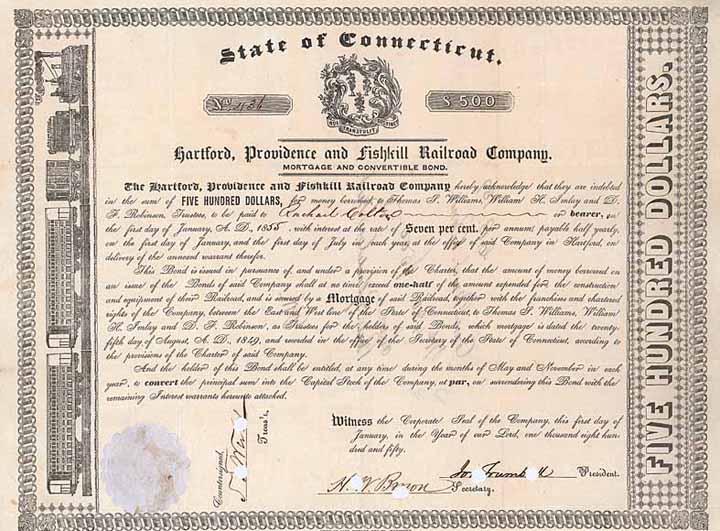 State of Connecticut.
No. 431
$ 500
QUI TRANSTULIT
Hartford, Providence and Fishkill Railroad Company.
MORTGAGE AND CONVERTIBLE BOND.
The Hartford, Providence and Fishkill Railroad Company hereby acknowledge that they are indebted
in the sum of FIVE HUNDRED DOLLARS, for money borrowed, to Thomas S. Williams, William H. Imlay and D.
F. Robinson, Trustees, to be paid to or bearer, on
the first day of January, A. D. 1855, with interest at the rate of Seven per cent. per annum, payable half yearly,
on the first day of January, and the first day of July in each year, at the office of said Company in Hartford, on
delivery of the annexed warrant therefor.
This Bond is issued in pursuance of, and under a provision of the Charter, that the amount of money borrowed on
an issue of the Bonds of said Company shall at no time exceed one-half of the amount expended for the construction
and equipment of their Railroad, and is secured by a Mortgage of said Railroad, together with the franchise and chartered
rights of the Company, between the East and West line of the State of Connecticut, to Thomas S. Williams, William
H. Imlay and D. F. Robinson, as Trustees for the holders of said Bonds, which mortgage is dated the twenty-
fifth day of August, A. D. 1849, and recorded in the office of the Secretary of the State of Connecticut, according to
the provisions of the Charter of said Company.
And the holder of this Bond shall be entitled, at any time during the months of May and November in each
year, to convert the principal sum into the Capital Stock of the Company, at par, on surrendering this Bond with the
remaining Interest warrants hereunto attached.
Witness the Corporate Seal of the Company, this first day of
January, in the Year of our Lord, one thousand eight hun-
dred and fifty.
Countersigned,
Treas'r.
President.
Secretary.
FIVE HUNDRED DOLLARS.